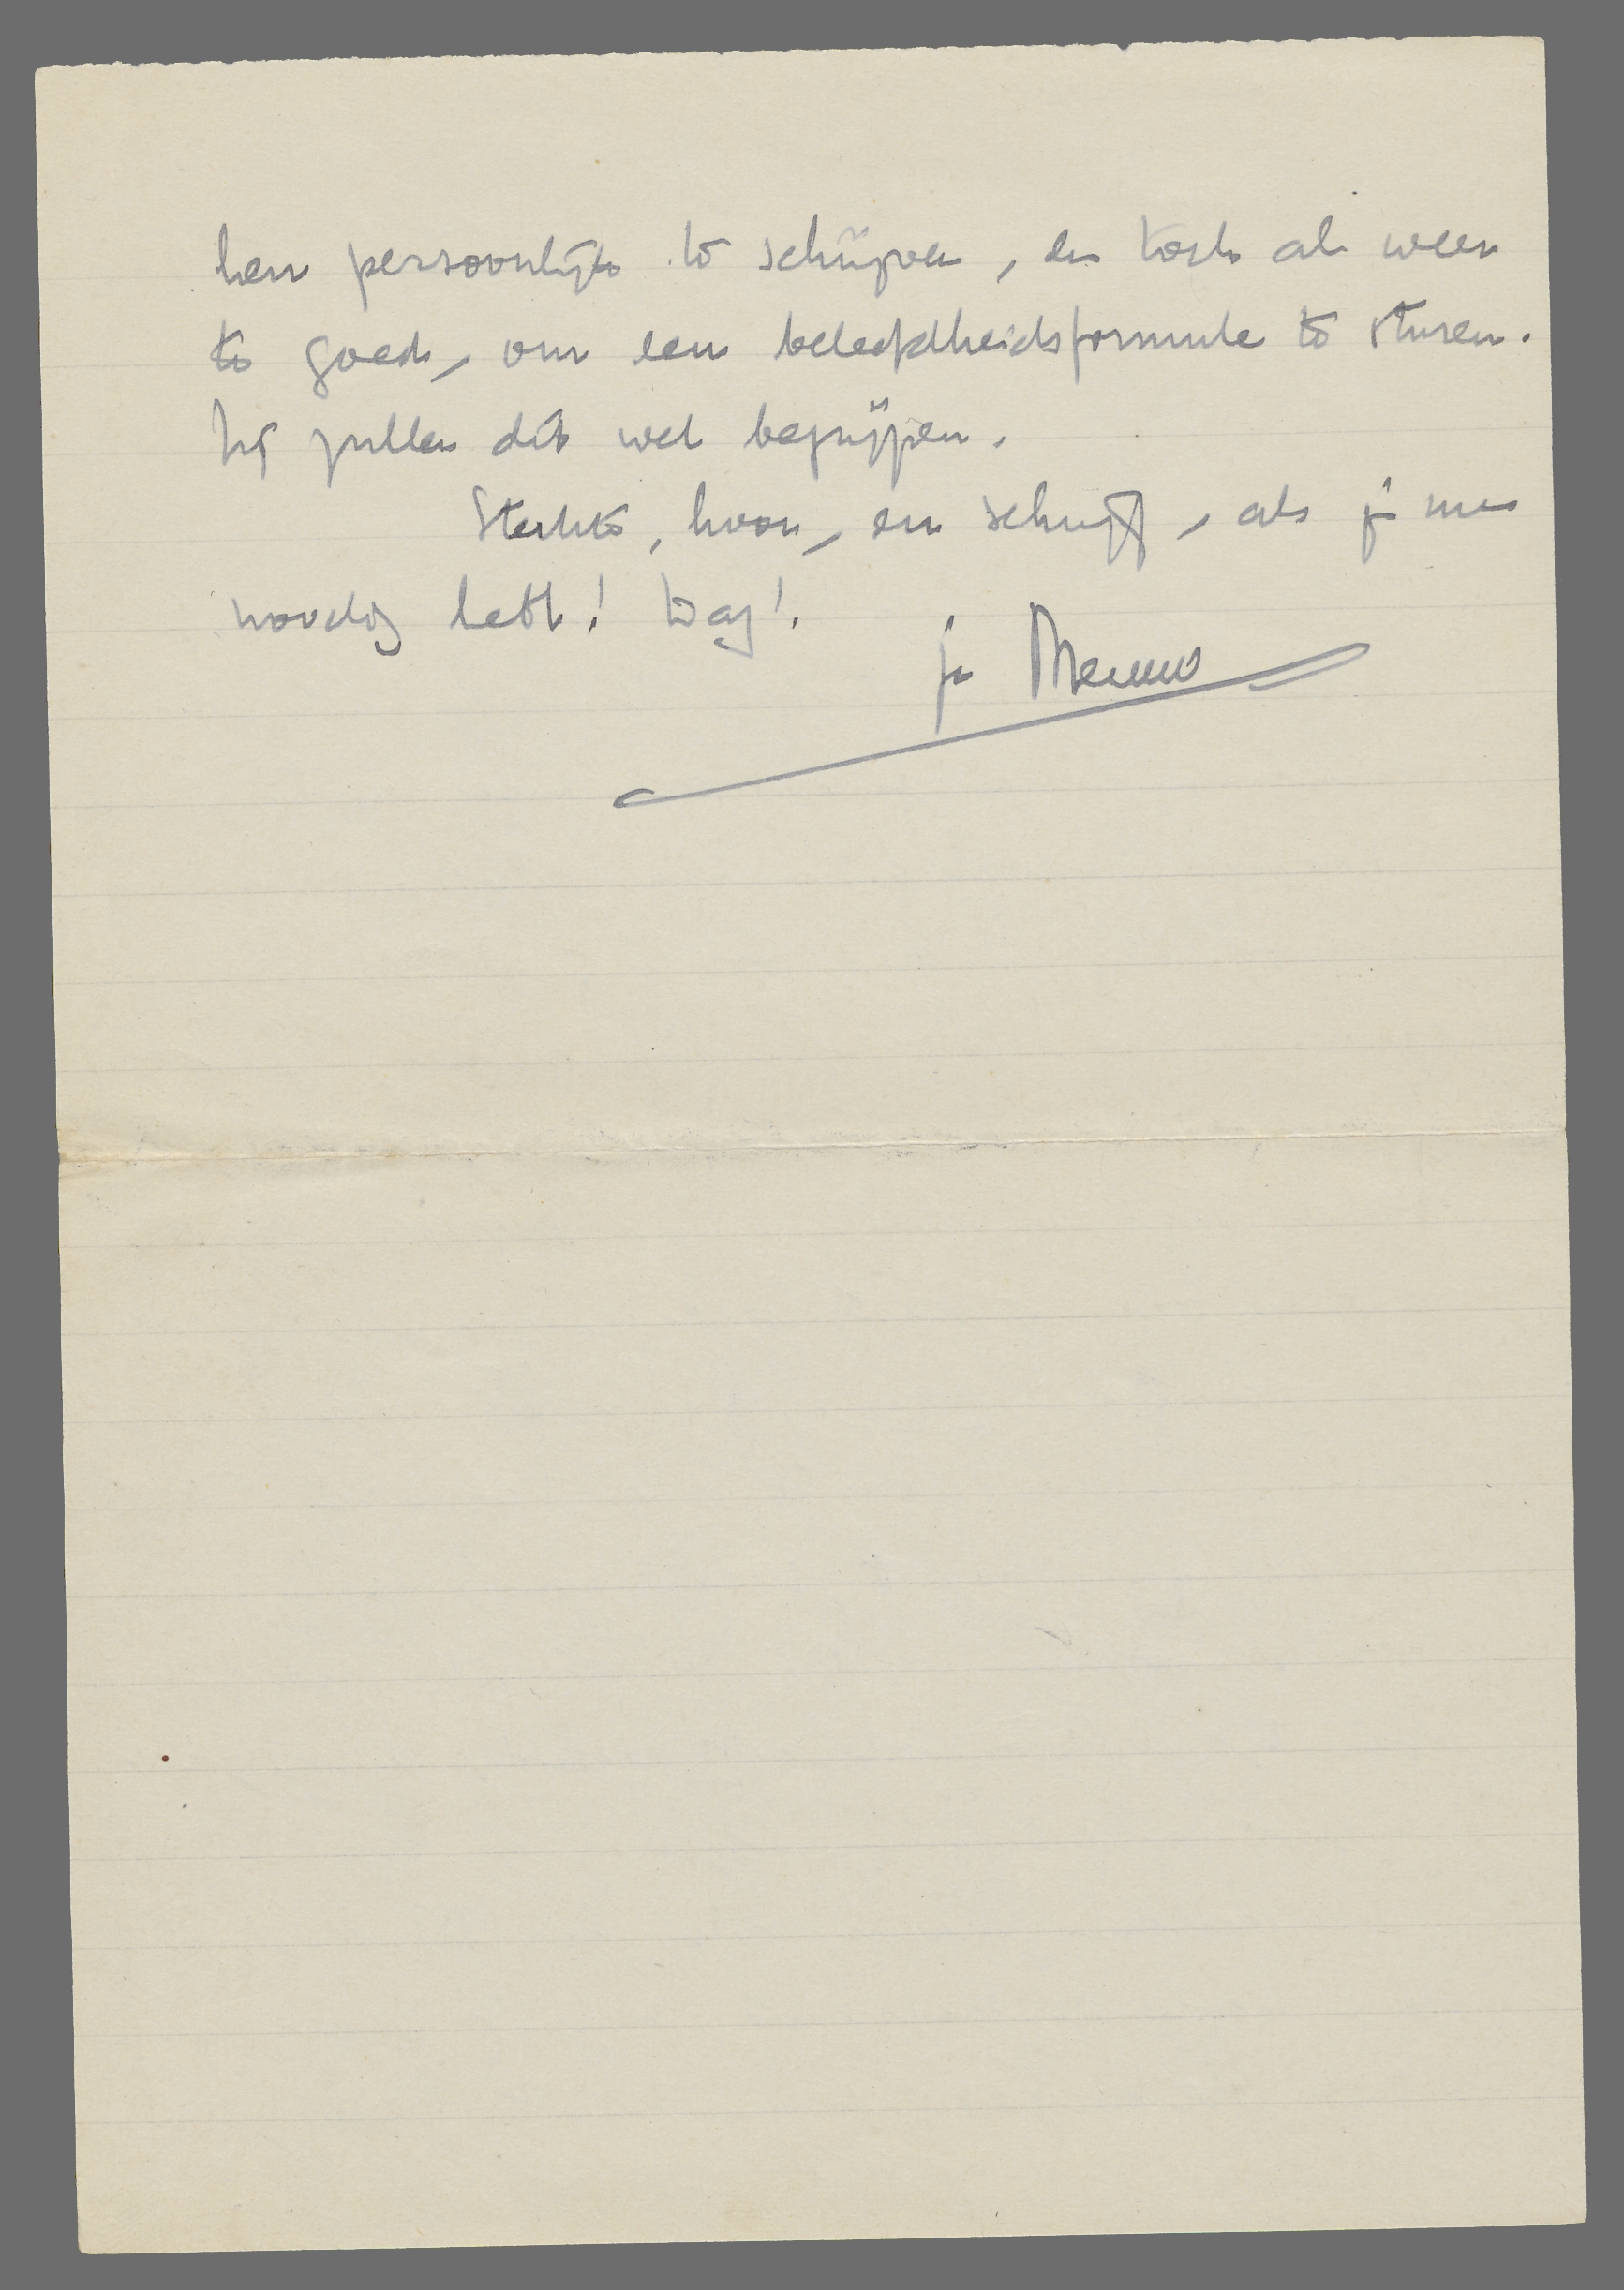 hen persoonlijk te schrijven, en toch al weer
te goed, om een beleefdheidsformule te sturen.
Zij zullen dit wel begrijpen.
Sterkte, hoor, en schrijf, als je me
noodig hebt! Dag!
je Menno